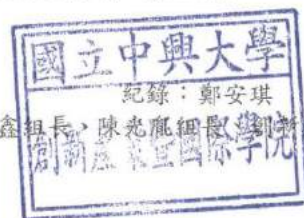 國立中興大學
紀錄：鄭安琪
鑫組長、陳光胤組長、創新
創新產業暨國際學院